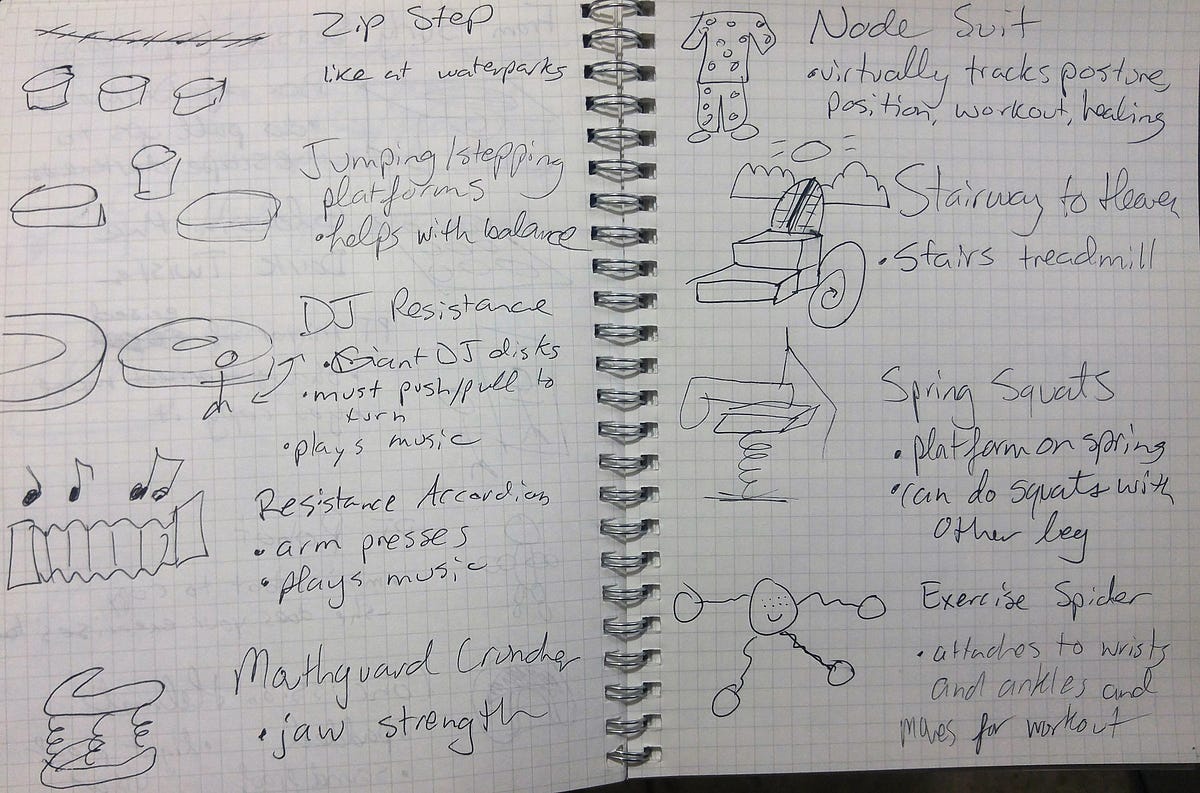 Zip Step
like at waterparks
Jumping/stepping
platforms
• helps with balance
DJ Resistance
• Giant DJ disks
• must push/pull to
turn
• plays music
Resistance Accordian
• arm presses
• plays music
Mouthguard Cruncher
• jaw strength
Node Suit
• virtually tracks posture,
position, workout, healing
Stairway to Heaven
• Stairs treadmill
Spring Squats
• platform on spring
• can do squats with
other leg
Exercise Spider
• attaches to wrists
and ankles and
moves for workout